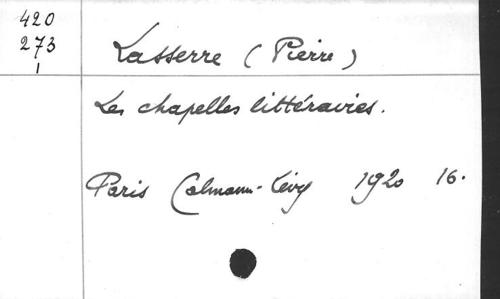 420
273
1
Lasserre (Pierre)
Les chapelles littéraires.
Paris Calmann-Lévy 1920 16.